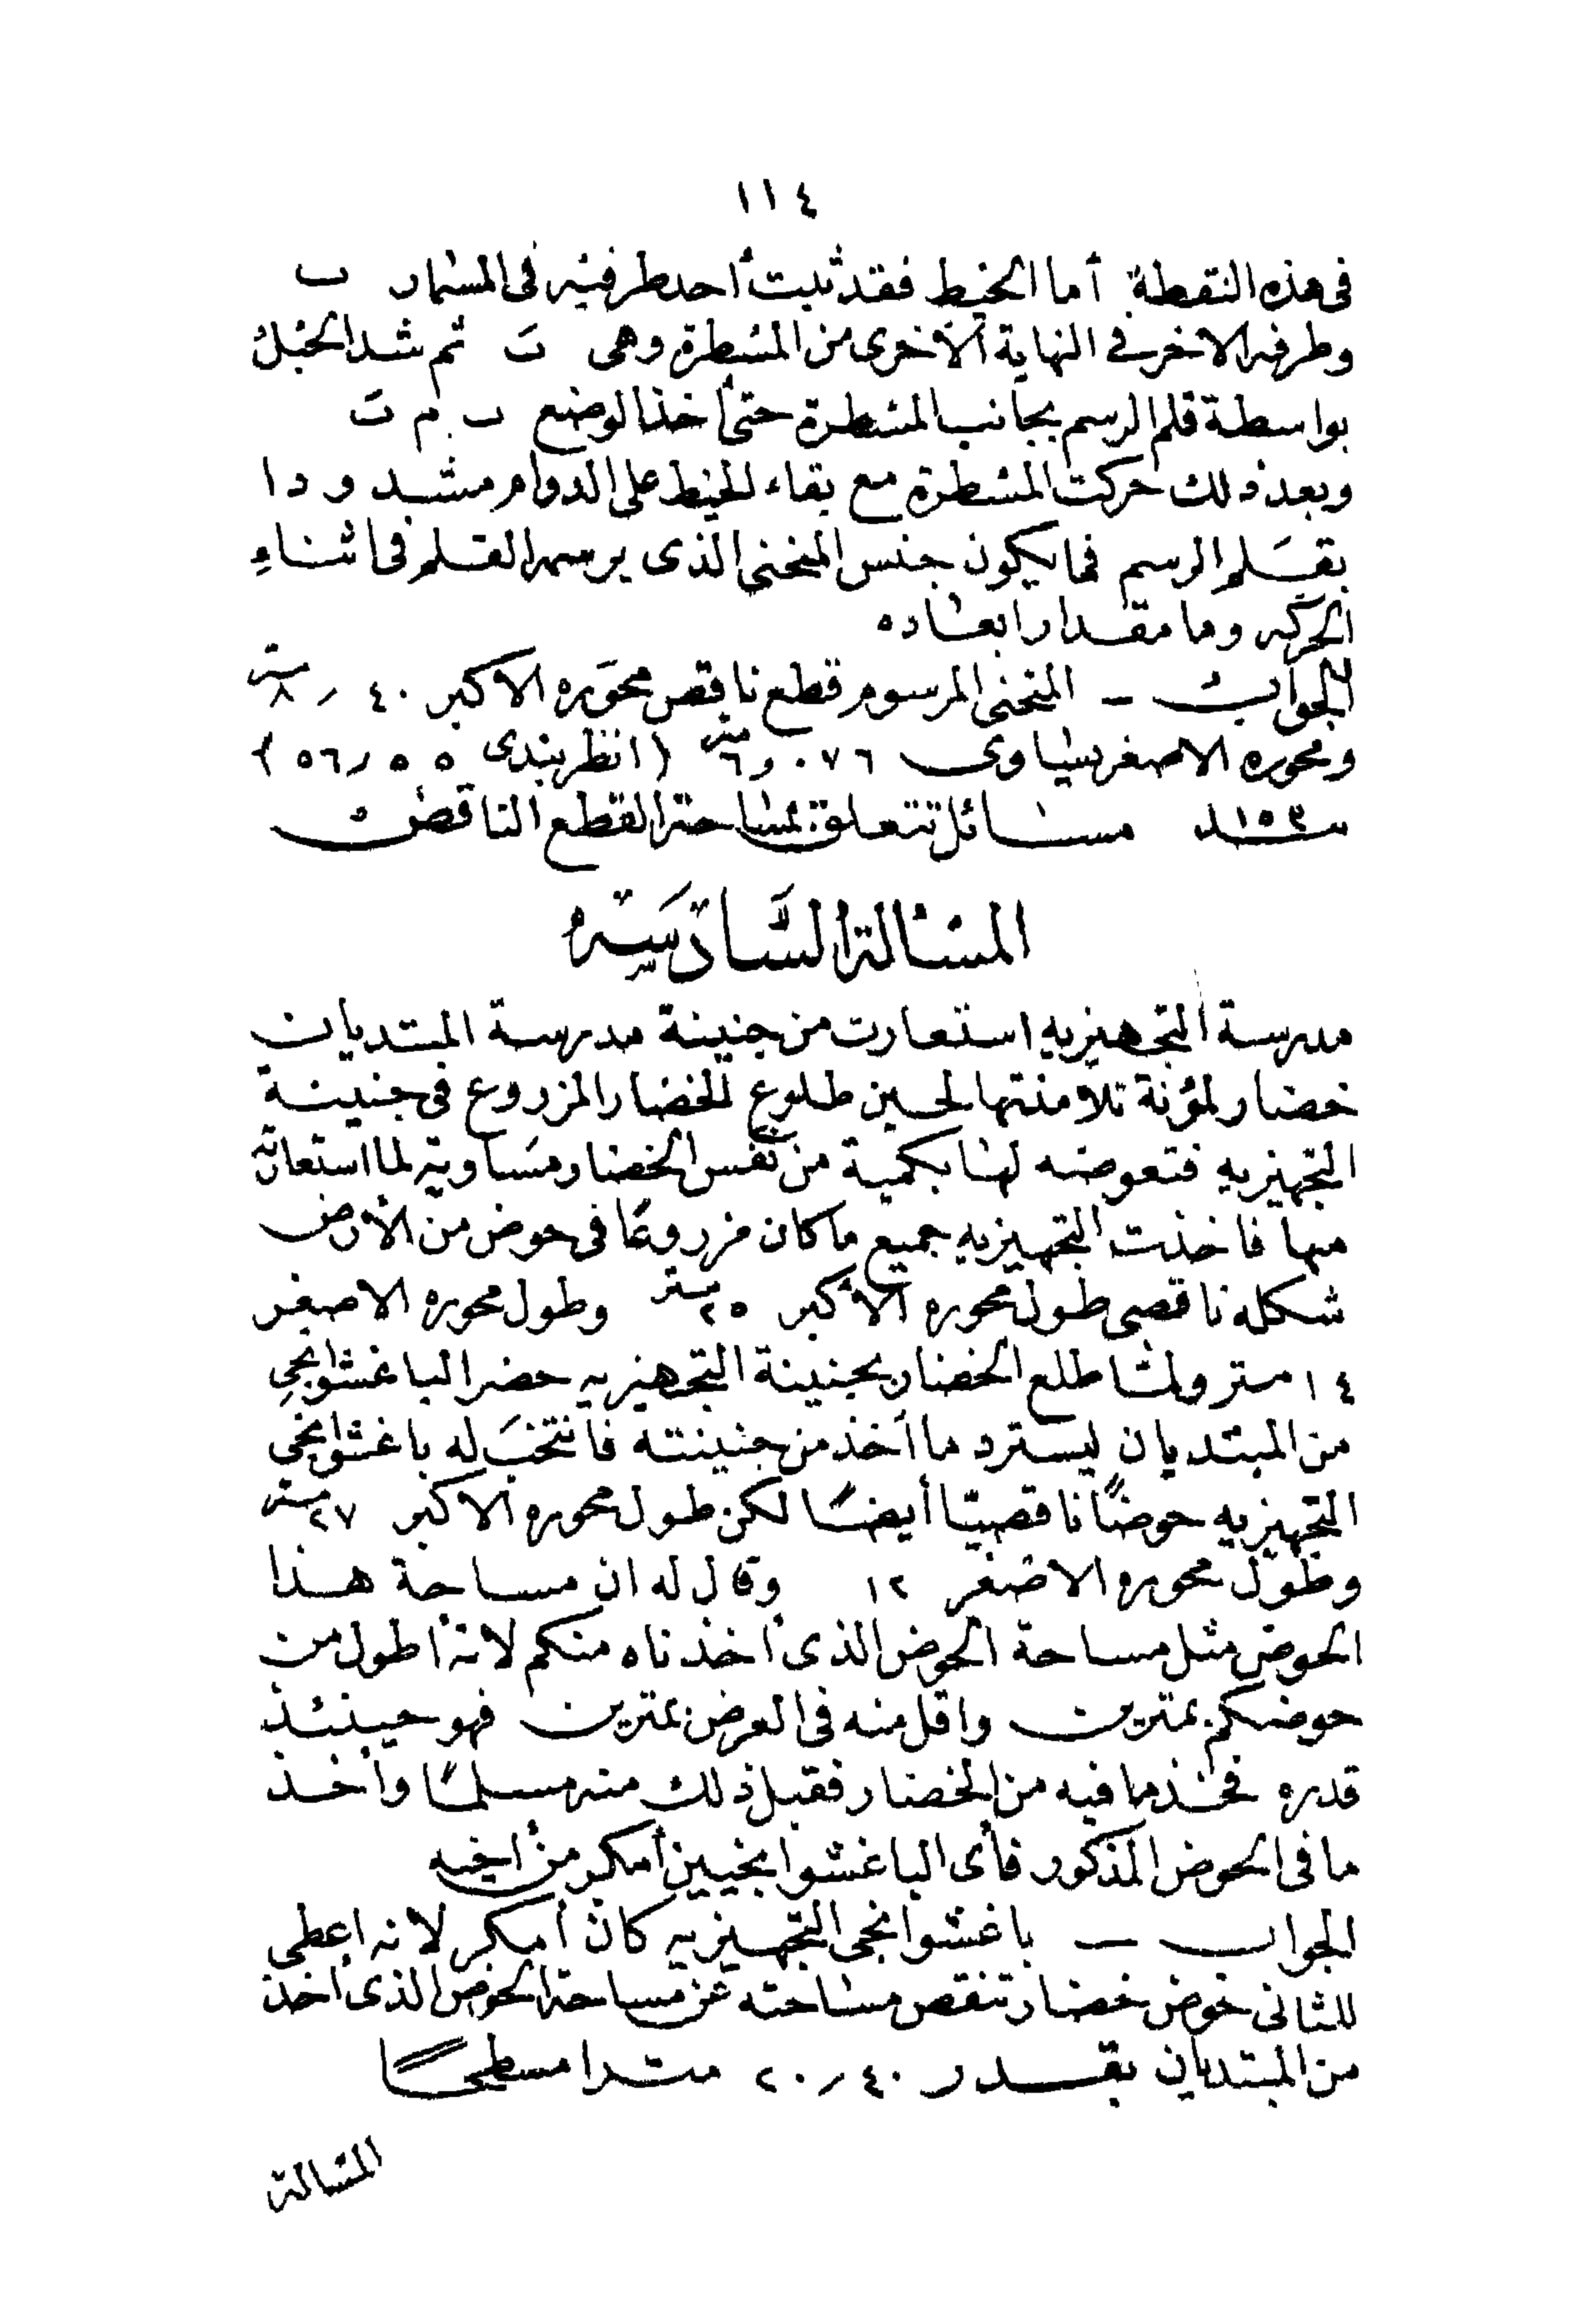 ١١٤
فى هذه النقطة أما الخيط فقد ثبت أحد طرفيه فى المسمار ب
وطرفه الاخر فى النهاية الأخرى من المسطرة وهى تَ ثم شد الحبل
بواسطة قلم الرسم بجانب المسطرة حتى أخذ الوضع ب م تَ
وبعد ذلك حركت المسطرة مع بقاء الخيط على الدوام مشدودا
بقلم الرسم فما يكون جنس المنحنى الذى يرسمه القلم فى اثناء
الحركه وما مقدار ابعاده
الجواب — المنحنى المرسوم قطع ناقص محوره الاكبر ٤٠ر٨ متر
ومحوره الاصغر يساوى ٠٧٦و٦ متر (انظر بندى ٥٥ر٥٦)
١٥٣ مسائل تتعلق بمساحة القطع الناقص
المسالة السَّادسَة
مدرسة التجهيزيه استعارت من جنينة مدرسة المبتديان
خضار لمؤنة تلامذتها لحين طلوع الخضار المزروع فى جنينة
التجهيزيه فتعوضه لها بكمية من نفس الخضار مساوية لما استعارته
منها فاخذت التجهيزيه جميع ما كان مزروعًا فى حوض من الأرض
شكله ناقصى طول محوره الأكبر ٢٥ متر وطول محوره الاصغر
١٤ متر ولما طلع الخضار بجنينة التجهيزيه حضر الباغشوانجى
من المبتديان ليسترد ما أخذ من جنينته فانتخب له باغشوانجى
التجهيزيه حوضًا ناقصيًا أيضًا لكن طول محوره الاكبر ٢٧ متر
وطول محوره الاصغر ١٢ وقال له ان مساحة هذا
الحوض مثل مساحة الحوض الذى أخذناه منكم لانه أطول من
حوضكم بمترين واقل منه فى العرض بمترين فهو حينئذ
قدره فخذ ما فيه من الخضار فقبل ذلك منه مسلمًا وأخذ
ما فى الحوض المذكور فأى الباغشوانجيين أمكر من أخيه
الجواب — باغشوانجى التجهيزيه كان أمكر لانه اعطى
للثانى حوض خضار تنقص مساحته عن مساحة الحوض الذى أخذ
من المبتديان بقدر ٤٠ر٢٠ مترا مسطحًا
المسالة